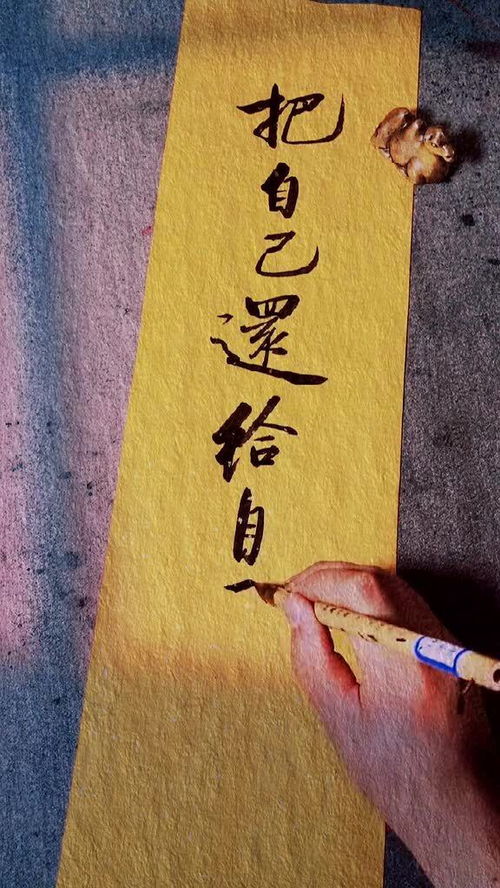 把自己還給自